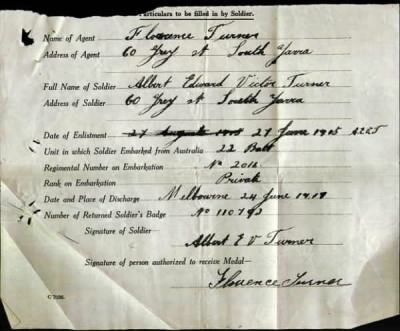 Particulars to be filled in by Soldier.
Name of Agent Florence Turner
Address of Agent 60 Grey St South Yarra
Full Name of Soldier Albert Edward Victor Turner
Address of Soldier 60 Grey St South Yarra
Date of Enlistment 27 August 27 June 1915
Unit in which Soldier Embarked from Australia 22 Batt
Regimental Number on Embarkation No 2016
Rank on Embarkation Private
Date and Place of Discharge Melbourne 24 June
Number of Returned Soldier's Badge
Signature of Soldier—
Albert E V Turner
Signature of person authorized to receive Medal—
Florence Turner